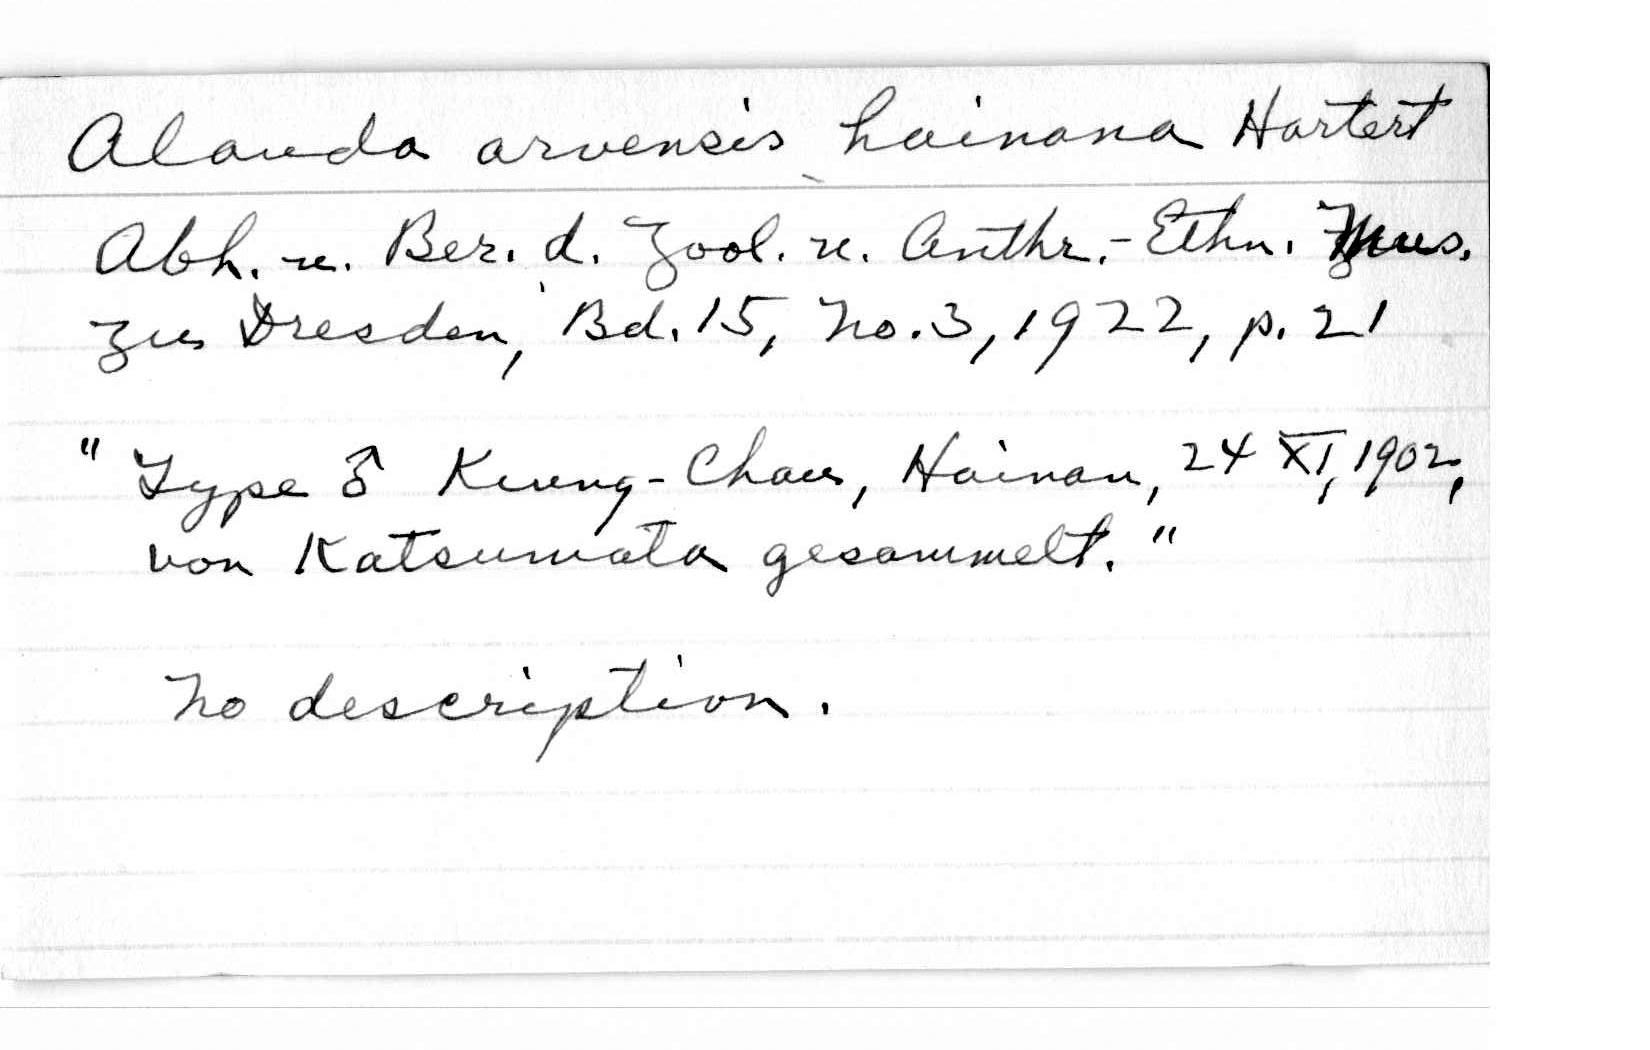 Alauda arvensis hainana Hartert
Abh. u. Ber. d. Zool. u. Anthr.-Ethn. Mus.
zu Dresden, Bd. 15, No. 3, 1922, p. 21
"Type ♂ Kiung-Chau, Hainan, 24 XI, 1902,
von Katsumata gesammelt."
No description.